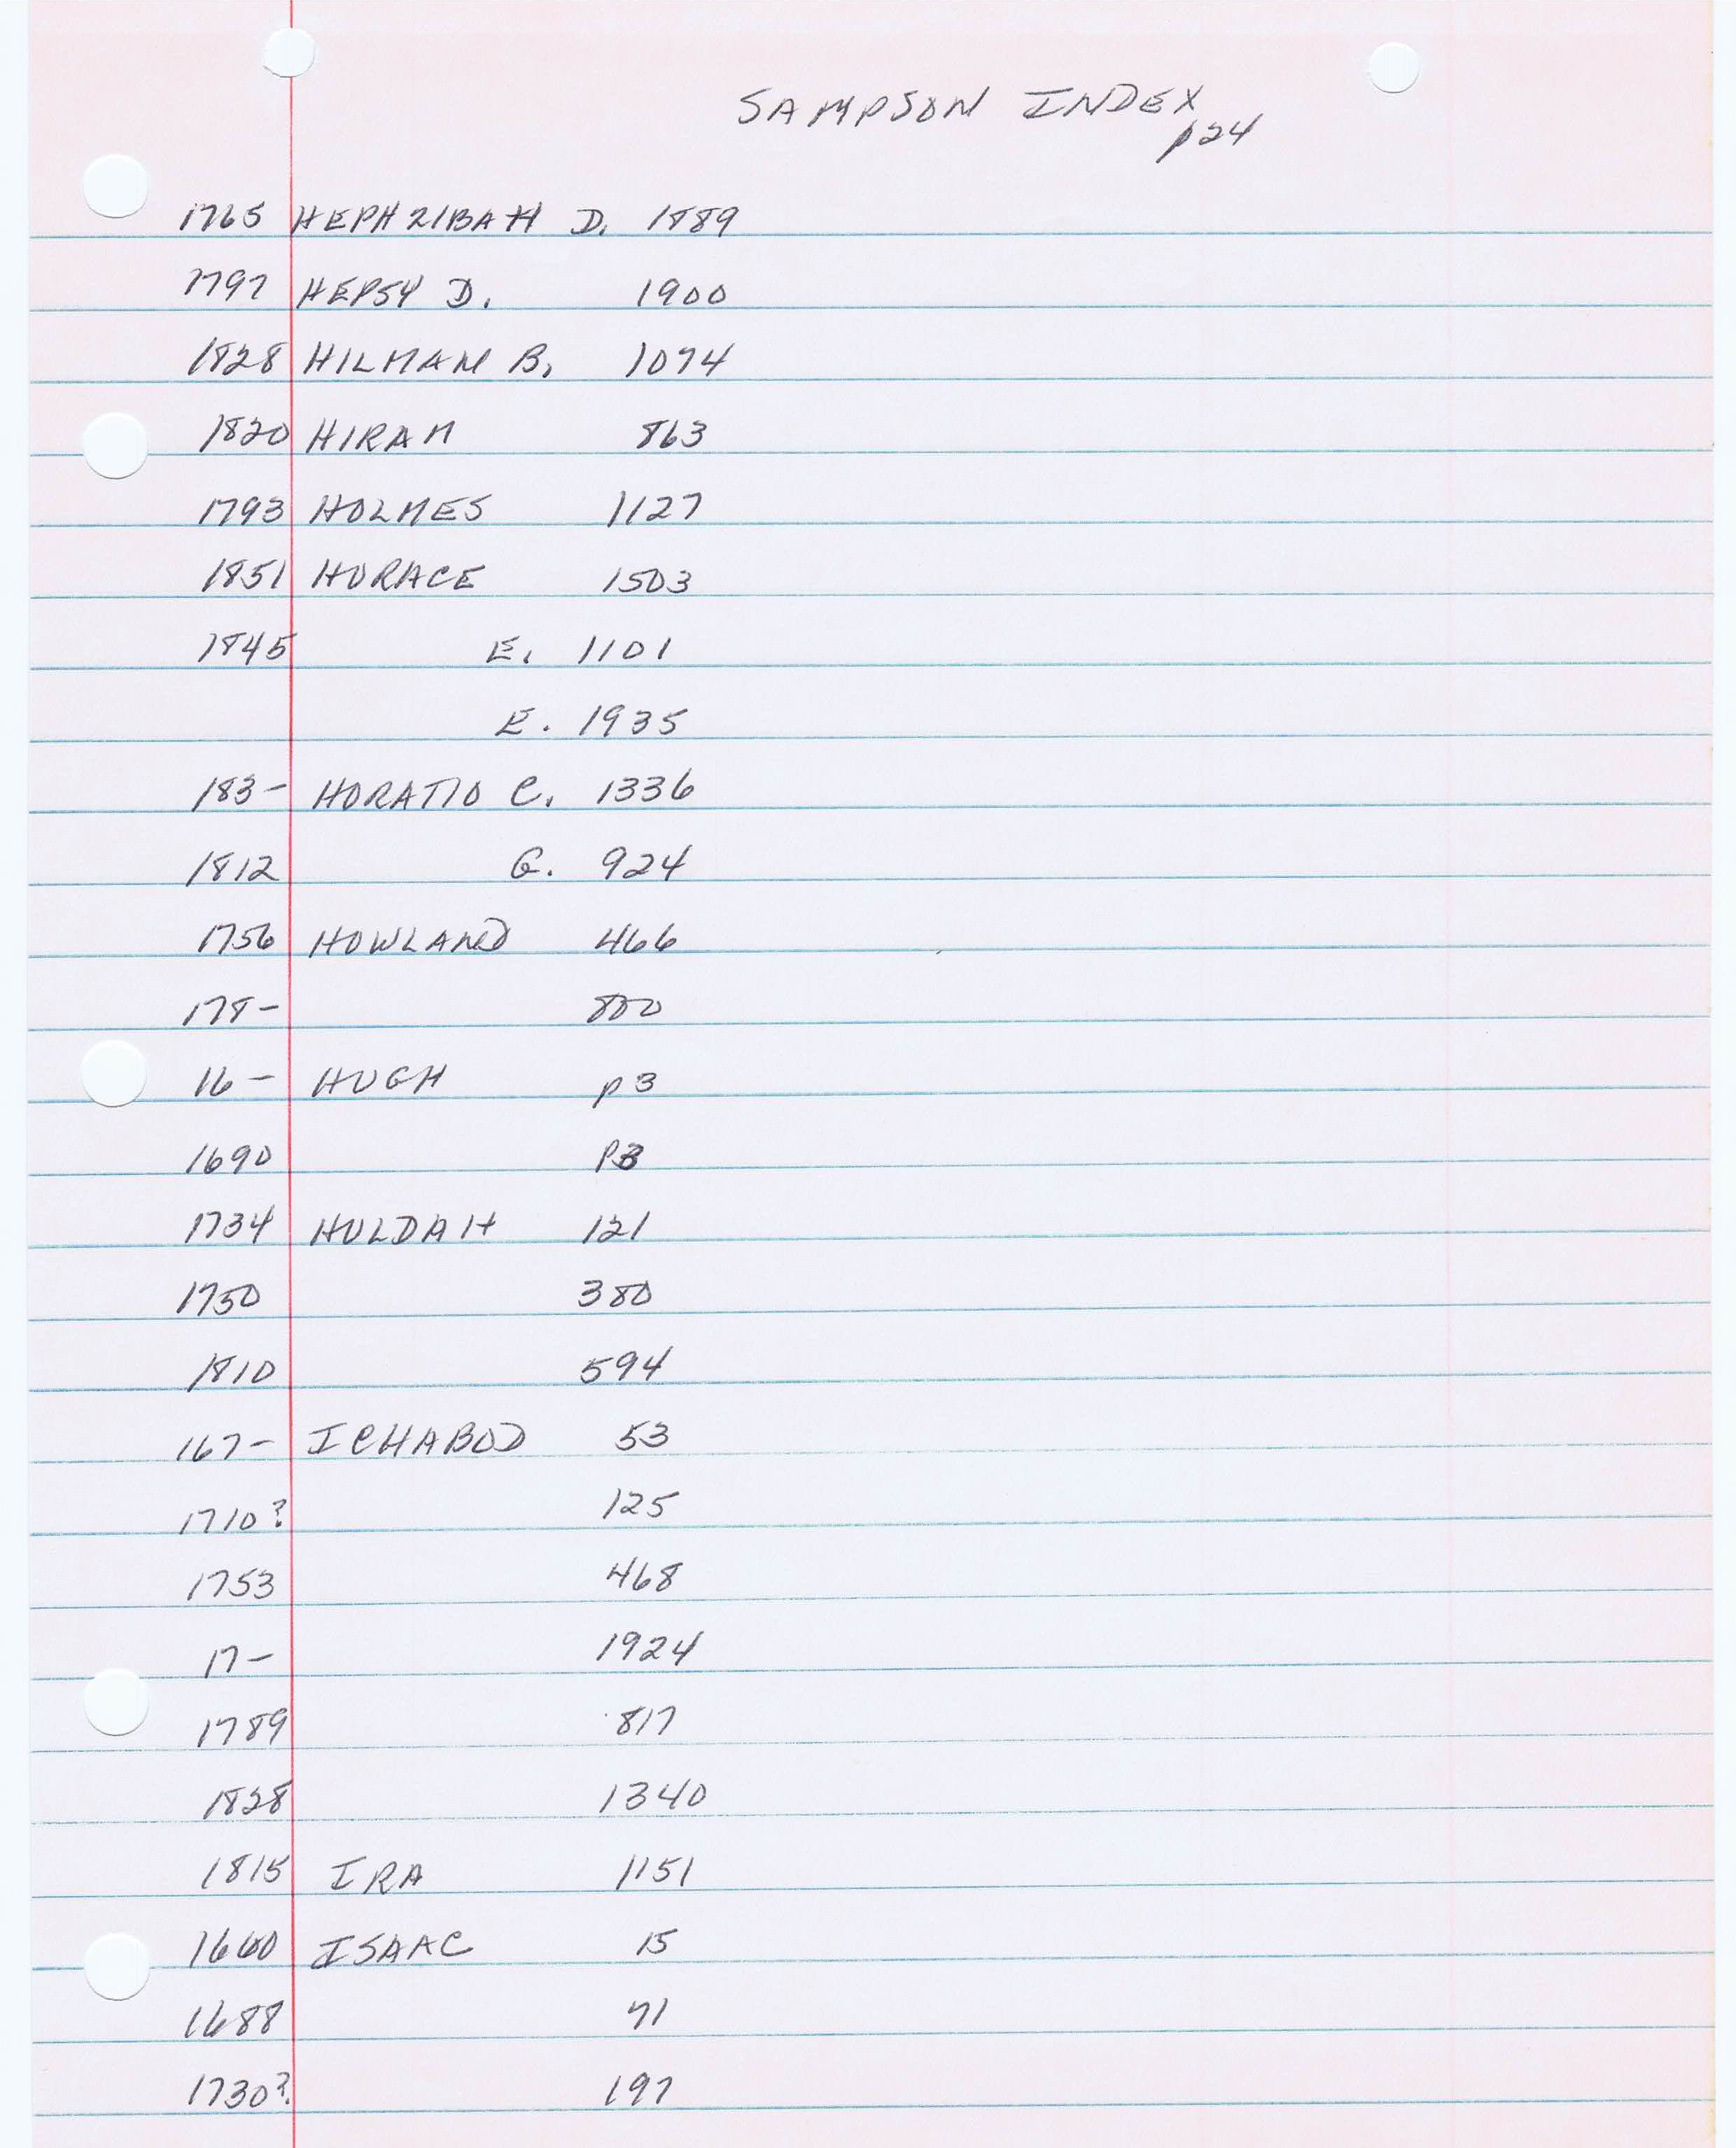 SAMPSON INDEX
p24
1765 HEPHZIBAH D. 1889
1797 HEPSY D. 1900
1828 HILMAN B. 1074
1820 HIRAM 863
1793 HOLMES 1127
1851 HORACE 1503
1845 E. 1101
E. 1935
183- HORATIO C. 1336
1812 G. 924
1756 HOWLAND 466
178- 800
16- HUGH p3
1690 P3
1734 HULDAH 121
1750 380
1810 594
167- ICHABOD 53
1710? 125
1753 468
17- 1924
1789 817
1828 1340
1815 IRA 1151
1660 ISAAC 15
1688 71
1730? 197